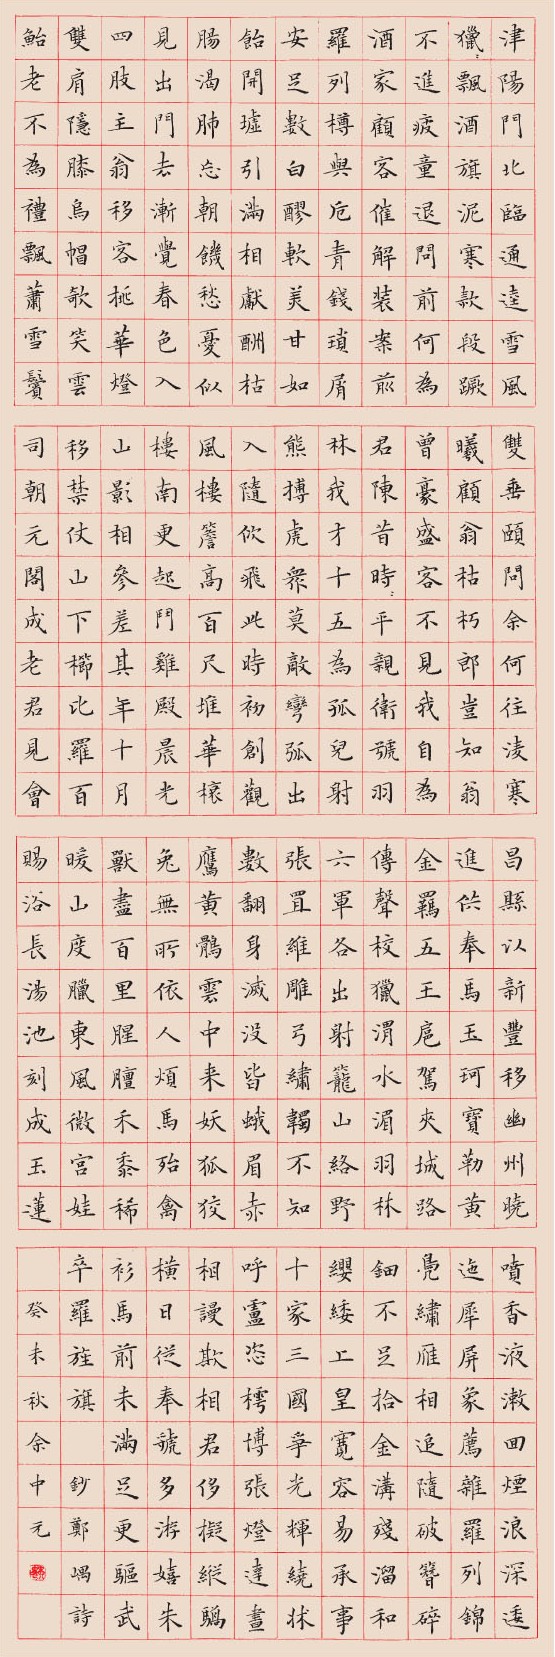 津陽門北臨通逵雪風
獵〻飄酒旗泥寒款段蹶
不進疲童退問前何為
酒家顧客催解裝案前
羅列樽與卮青錢瑣屑
安足數白醪軟美甘如
飴開壚引滿相獻酬枯
腸渴肺忘朝饑愁憂似
見出門去漸覺春色入
四肢主翁移客挑華燈
雙肩隱膝烏帽欹笑雲
鮐老不為禮飄蕭雪鬢
雙垂頤問余何往凌寒
曦顧翁枯朽郎豈知翁
曾豪盛客不見我自為
君陳昔時〻平親衛號羽
林我才十五為孤兒射
熊搏虎眾莫敵彎弧出
入隨佽飛此時初創觀
風樓簷高百尺堆華榱
樓南更起鬥雞殿晨光
山影相參差其年十月
移禁仗山下櫛比羅百
司朝元閣成老君見會
昌縣以新豐移幽州曉
進供奉馬玉珂寶勒黃
金羈五王扈駕夾城路
傳聲校獵渭水湄羽林
六軍各出射籠山絡野
張罝維雕弓繡韣不知
數翻身滅沒皆蛾眉赤
鷹黃鶻雲中來妖狐狡
兔無所依人煩馬殆禽
獸盡百里腥膻禾黍稀
暖山度臘東風微宮娃
賜浴長湯池刻成玉蓮
噴香液漱回煙浪深逶
迤犀屏象薦雜羅列錦
鳧繡雁相追隨破簪碎
鈿不足拾金溝殘溜和
纓緌上皇寬容易承事
十家三國爭光輝繞牀
呼盧恣樗博張燈達晝
相謾欺相君侈擬縱驕
橫日從奉號多游嬉朱
衫馬前未滿足更驅武
卒羅旌旗 鈔鄭嵎詩
癸未秋余中元